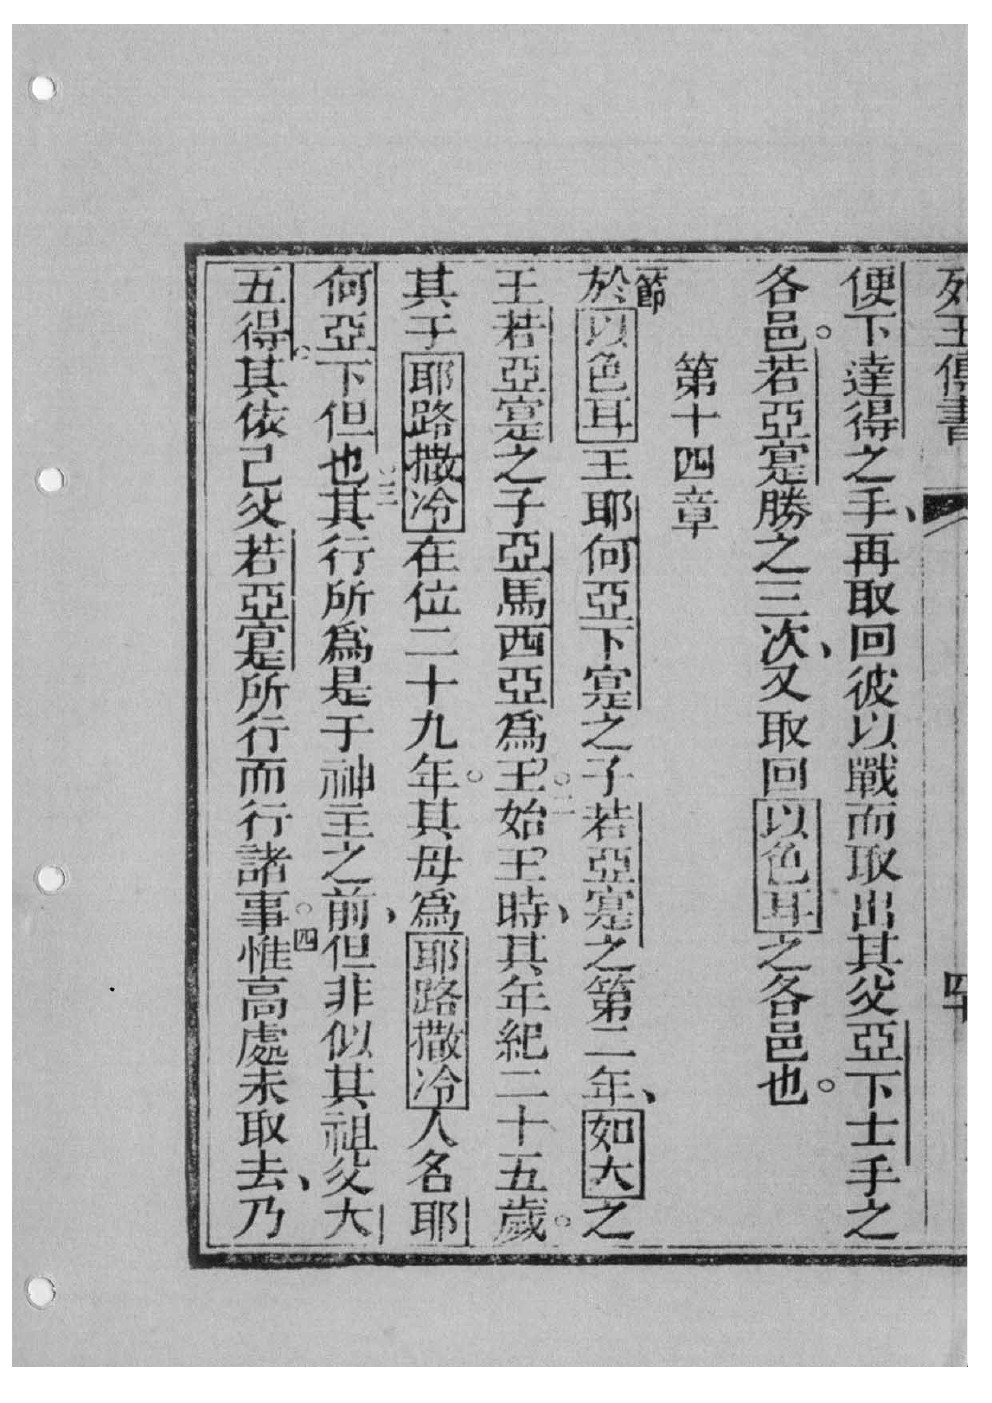 列王傳書
四
便下達得之手、再取回彼以戰而取出其父亞下士手之
各邑。若亞寔勝之三次、又取回以色耳之各邑也。
第十四章
節於以色耳王耶何亞下寔之子若亞寔之第二年、如大之
王若亞寔之子亞馬西亞爲王。二始王時、其年紀二十五歲。
其于耶路撒冷在位二十九年。其母爲耶路撒冷人名耶
何亞下但也。三其行所爲是于神主之前、但非似其祖父大
五得。其依己父若亞寔所行而行諸事。四惟高處未取去、乃